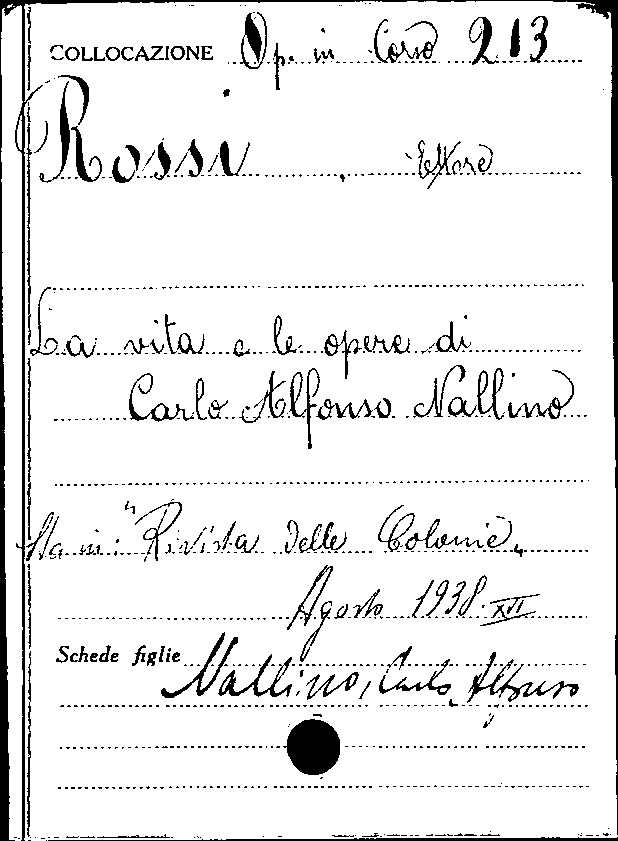 COLLOCAZIONE Op. in Corso 213
Rossi, Ettore
La vita e le opere di
Carlo Alfonso Nallino
Sta in: "Rivista delle Colonie"
Agosto 1938. XVI
Schede figlie
Nallino, Carlo Alfonso